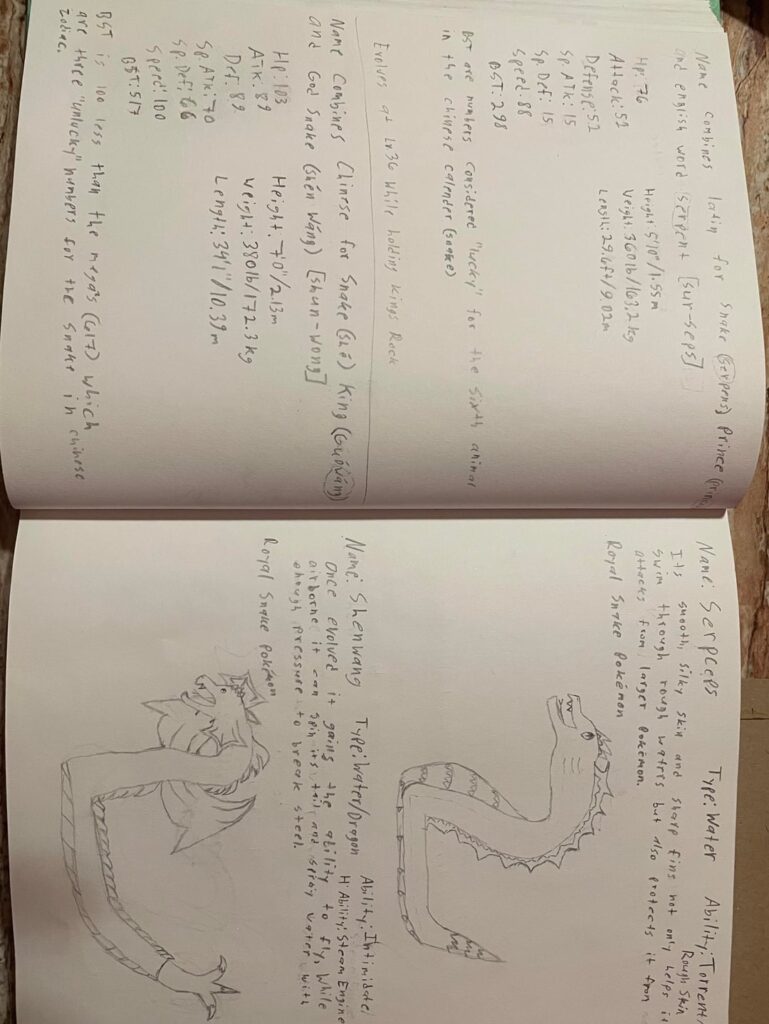 Name combines latin for snake (serpens) Prince
and english word serpent [sur-seps]
Hp: 76
Attack: 52
Defense: 52
Sp. Atk: 15
Sp. Def: 15
Speed: 88
BST: 298
Height 5'10"/1.55m
Weight: 360lb/163.2kg
Length: 29.6ft/9.02m
BST are numbers considered "lucky" for the sixth animal
in the chinese calender (snake)
Evolves at Lv.36 while holding Kings Rock
Name Combines Chinese for Snake (shé) King (Guówáng)
and God Snake (shén Wáng) [shun-wong]
Hp: 103
Atk: 89
Def: 89
Sp. Atk: 70
Sp. Def: 66
Speed: 100
BST: 517
Height: 7'0"/2.13m
Weight: 380lb/172.3kg
Length: 34'1"/10.39m
BST is 100 less than the mega's (617) which
are three "unlucky" numbers for the snake in chinese
zodiac.
Name: Serpceps Type: Water Ability: Torrent
Rough Skin
Its smooth, silky skin and sharp fins not only helps it
swim through rough waters but also protects it from
attacks from larger Pokémon.
Royal Snake Pokémon
Name: Shenwang Type: Water/Dragon Ability: Intimidate
H Ability: Steam Engine
Once evolved it gains the ability to fly, while
airborne it can spin its tail and spray water with
enough pressure to break steel.
Royal Snake Pokémon